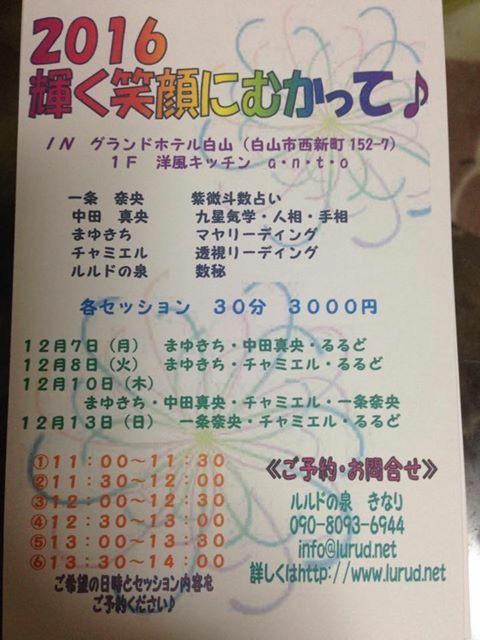 2016
輝く笑顔にむかって♪
IN グランドホテル白山（白山市西新町152-7）
1F 洋風キッチン a・n・t・o
一条 奈央 紫微斗数占い
中田 真央 九星気学・人相・手相
まゆきち マヤリーディング
チャミエル 透視リーディング
ルルドの泉 数秘
各セッション 30分 3000円
12月7日（月） まゆきち・中田真央・るるど
12月8日（火） まゆきち・チャミエル・るるど
12月10日（木）
まゆきち・中田真央・チャミエル・一条奈央
12月13日（日） 一条奈央・チャミエル・るるど
①11：00～11：30
②11：30～12：00
③12：00～12：30
④12：30～13：00
⑤13：00～13：30
⑥13：30～14：00
ご希望の日時とセッション内容を
ご予約ください♪
《ご予約・お問合せ》
ルルドの泉 きなり
090-8093-6944
info@lurud.net
詳しくはhttp://www.lurud.net